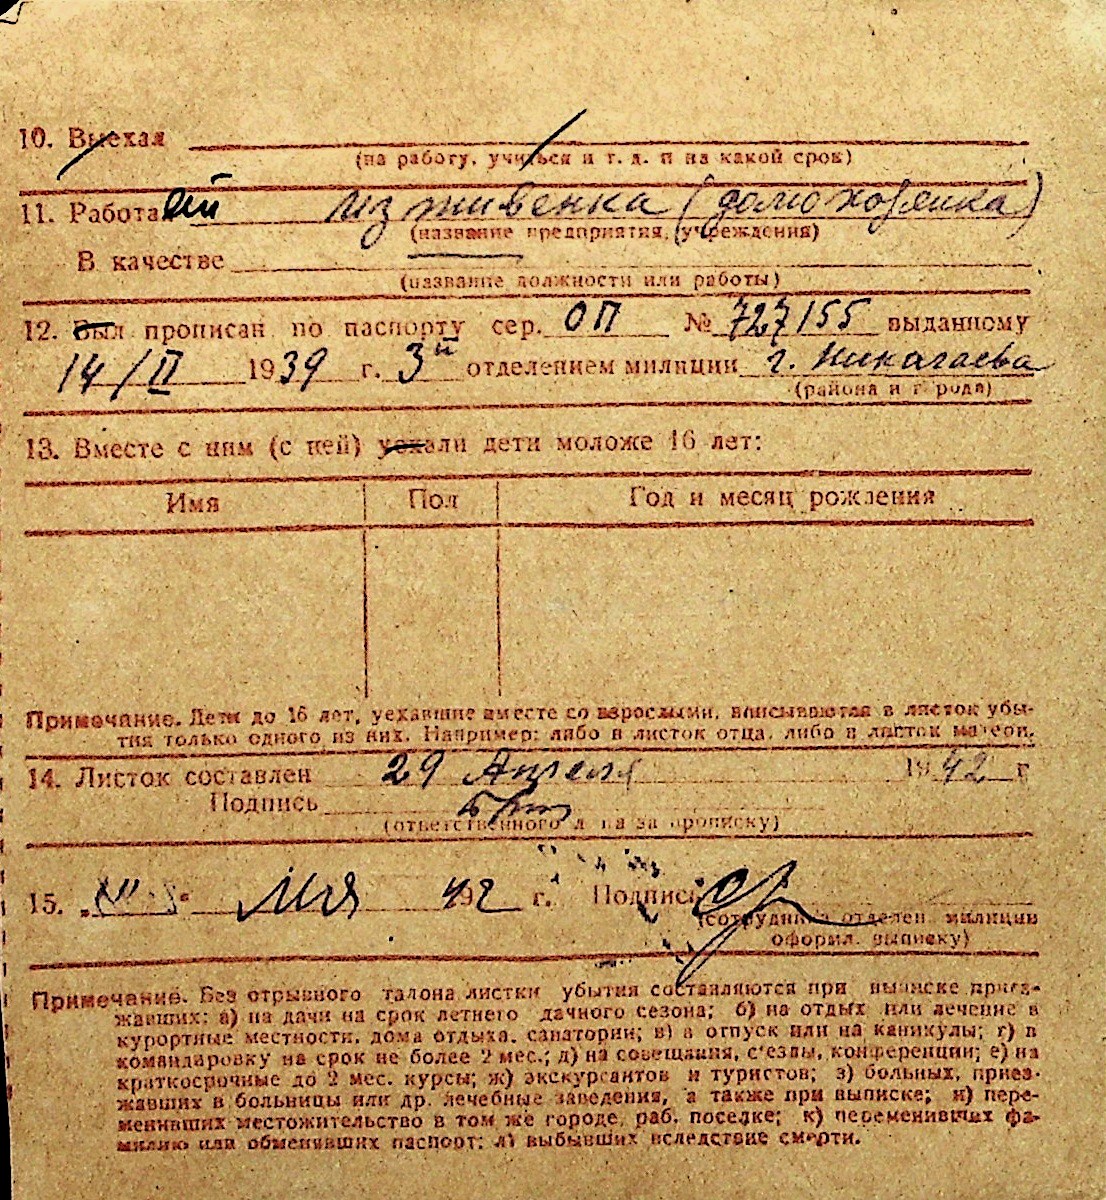 10. Выехал
(на работу, учиться и т. д. и на какой срок)
11. Работает иждивенка (домохозяйка)
(название предприятия, учреждения)
В качестве
(название должности или работы)
12. Был прописан по паспорту сер. ОП № 727155 выданному
14/II 1939 г. 3й отделением милиции г. Николаева
(района и города)
13. Вместе с ним (с ней) уехали дети моложе 16 лет:
Имя Пол Год и месяц рождения
Примечание. Дети до 16 лет, уехавшие вместе со взрослыми, вписываются в листок убы-
тия только одного из них. Например: либо в листок отца, либо в листок матери.
14. Листок составлен 29 Апреля 1942 г
Подпись
(ответственного лица за прописку)
15. Мая 42 г. Подпись
(сотрудника отделен. милиции
оформл. выписку)
Примечание. Без отрывного талона листки убытия составляются при выписке приез-
жавших: а) на дачи на срок летнего дачного сезона; б) на отдых или лечение в
курортные местности, дома отдыха, санатории; в) в отпуск или на каникулы; г) в
командировку на срок не более 2 мес.; д) на совещания, с'езды, конференции; е) на
краткосрочные до 2 мес. курсы; ж) экскурсантов и туристов; з) больных, приез-
жавших в больницы или др. лечебные заведения, а также при выписке; и) пере-
менивших местожительство в том же городе, раб. поселке; к) переменивших фа-
милию или обменявших паспорт; л) выбывших вследствие смерти.